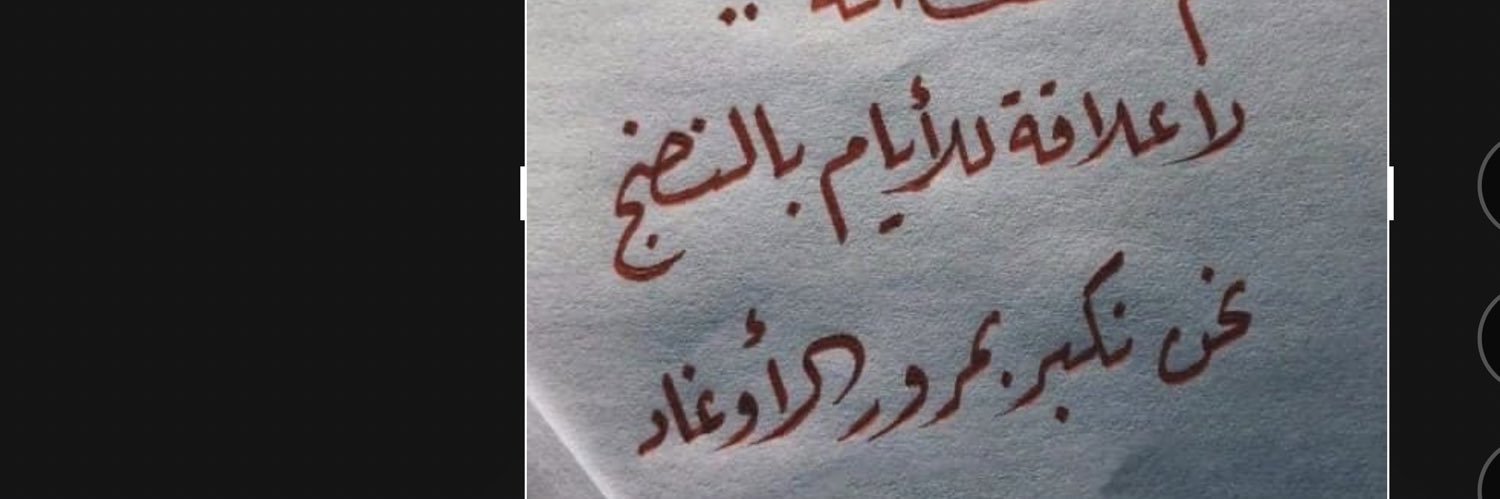 لا علاقة للأيام بالنضج
نحن نكبر بمرور الأوغاد